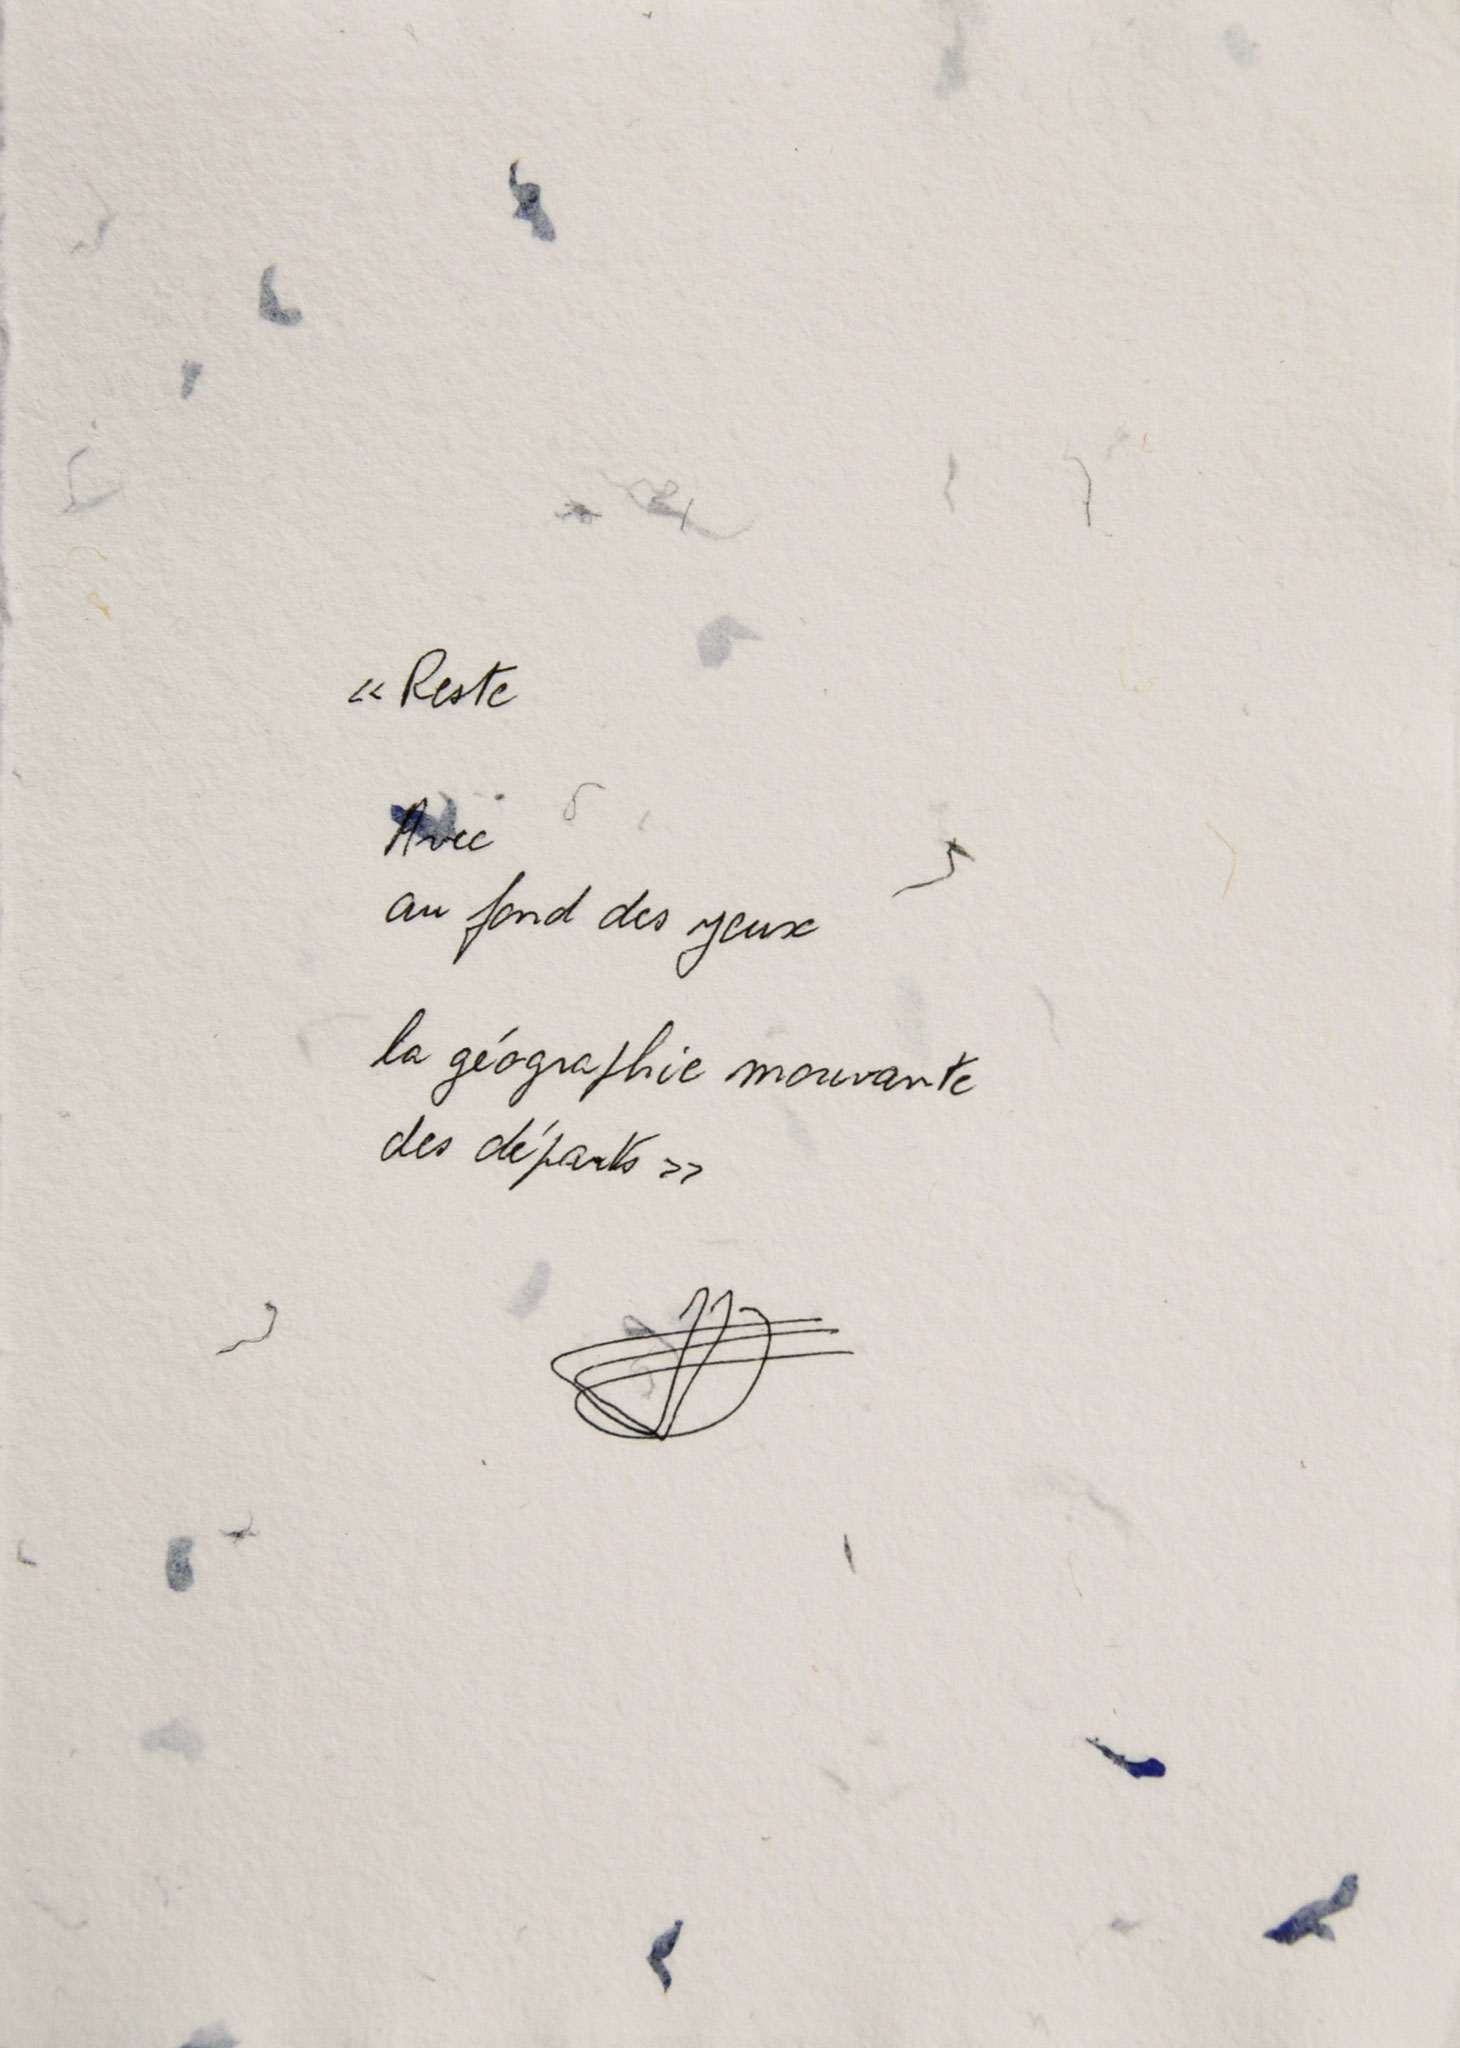 « Reste
Avec
au fond des yeux
la géographie mouvante
des départs »